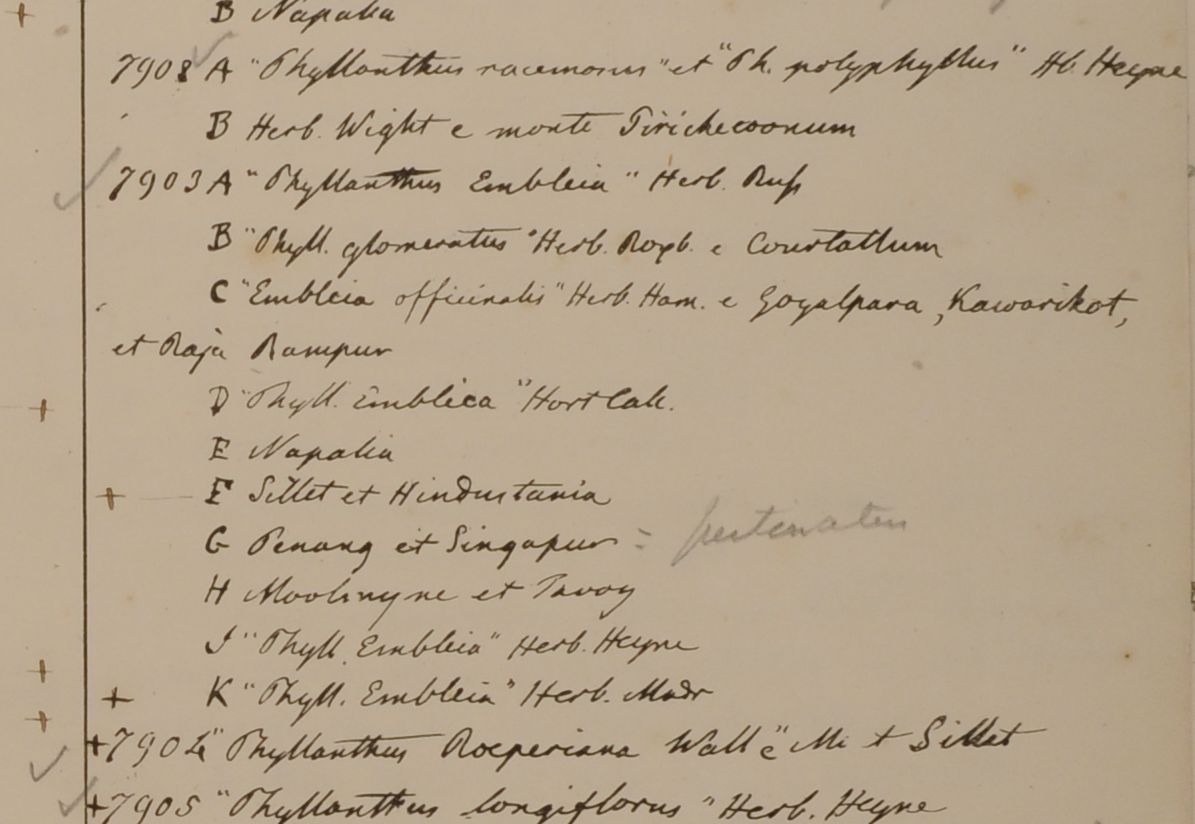 B Napalia
7908 A "Phyllanthus racemosus" et "Ph. polyphyllus" Hb. Heyne
B Herb. Wight e monte Tirichecoonum
7903 A "Phyllanthus Emblica" Herb. Russ
B "Phyll. glomeratus" Herb. Roxb. e Courtallum
C "Emblica officinalis" Herb. Ham. e Goyalpara, Kawarikot,
et Raja Rampur
D "Phyll. Emblica" Hort Calc.
E Napalia
F Sillet et Hindustania
G Penang et Singapur =
H Moolmyne et Tavoy
J "Phyll. Emblica" Herb. Heyne
K "Phyll. Emblica" Herb. Madr
+7904 "Phyllanthus Roeperiana Wall" e Mt Sillet
+7905 "Phyllanthus longiflorus" Herb. Heyne